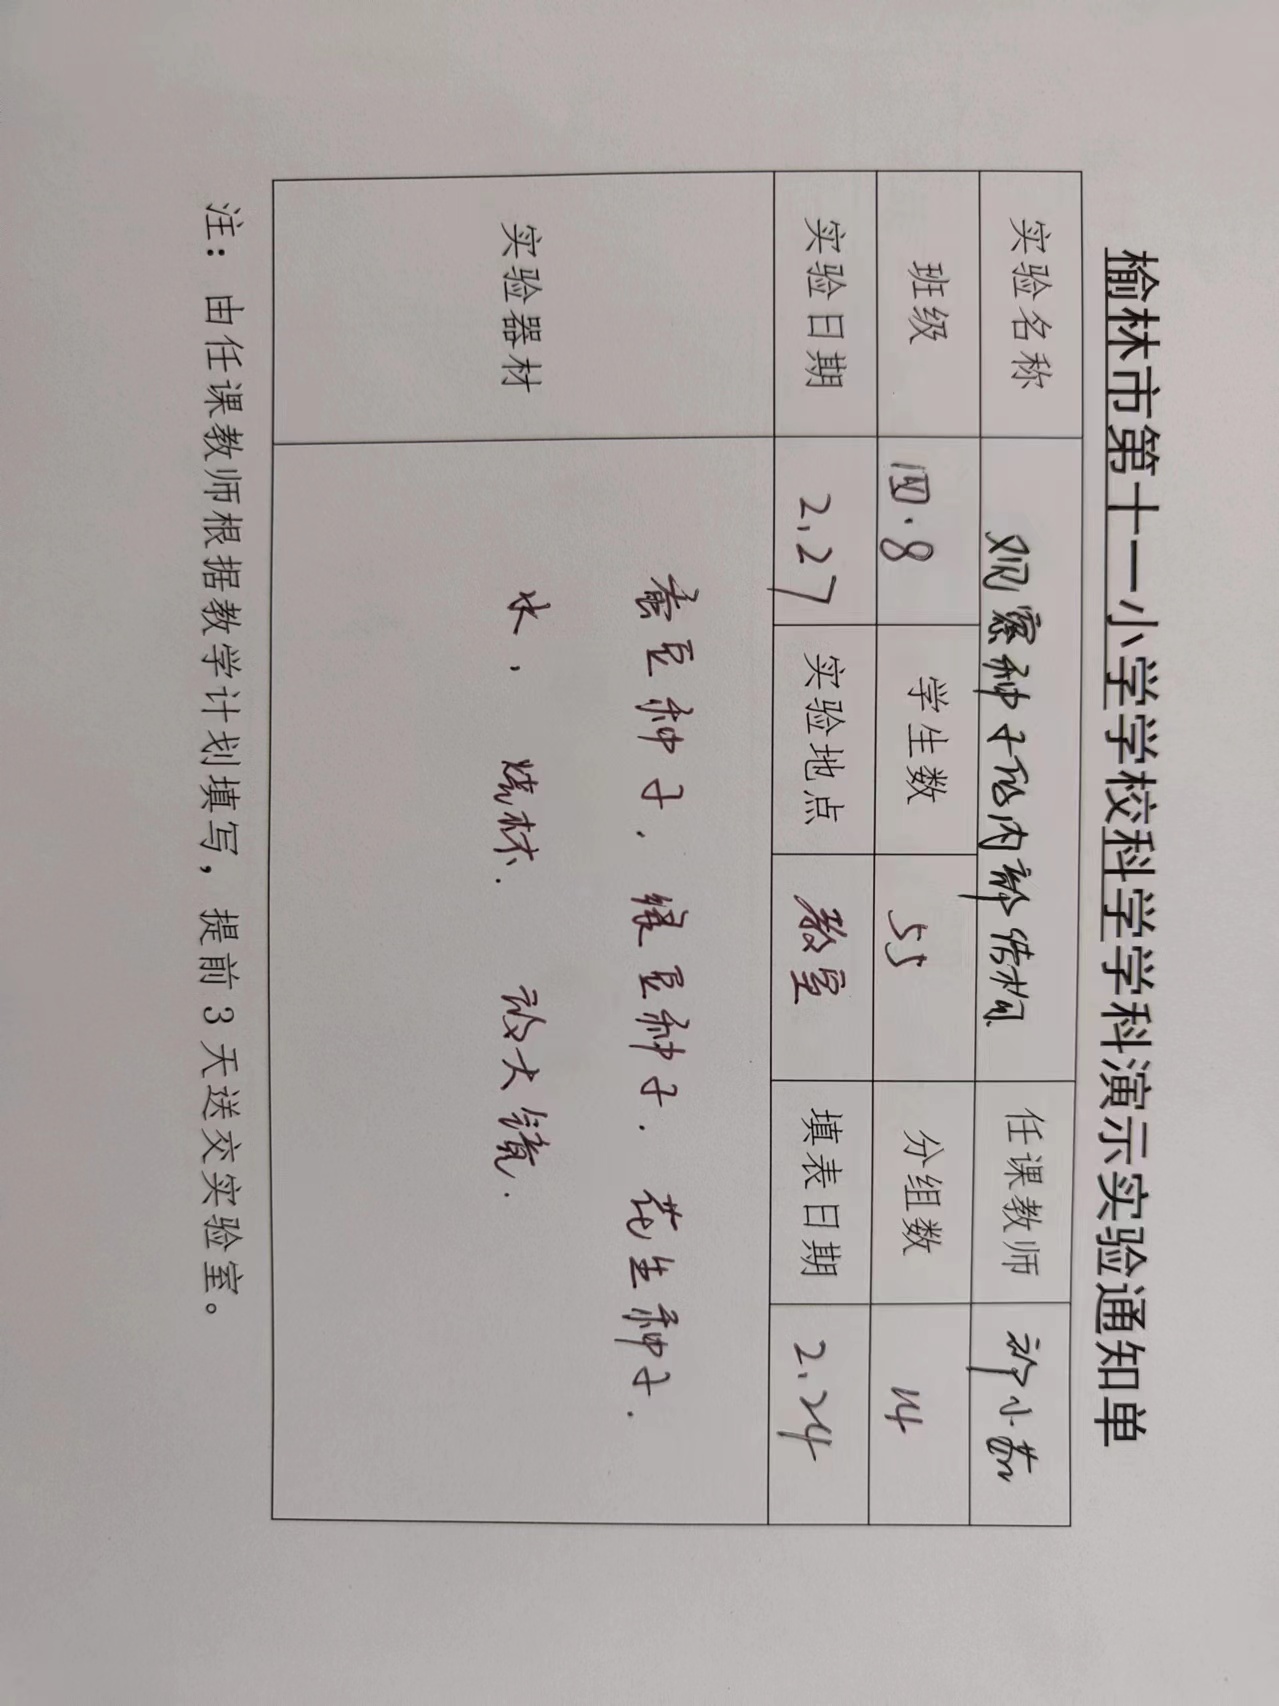 榆林市第十一小学学校科学学科演示实验通知单
实验名称 观察种子的内部结构 任课教师 小茹
班级 四.8 学生数 55 分组数 14
实验日期 2.27 实验地点 教室 填表日期 2.24
实验器材
蚕豆种子. 绿豆种子. 花生种子.
水, 烧杯. 放大镜.
注：由任课教师根据教学计划填写，提前3天送交实验室。